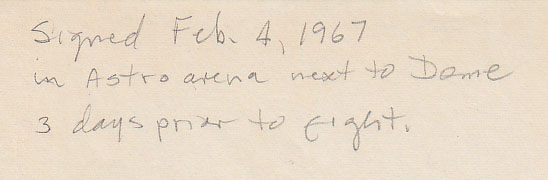 Signed Feb. 4, 1967
in Astro arena next to Dome
3 days prior to fight.